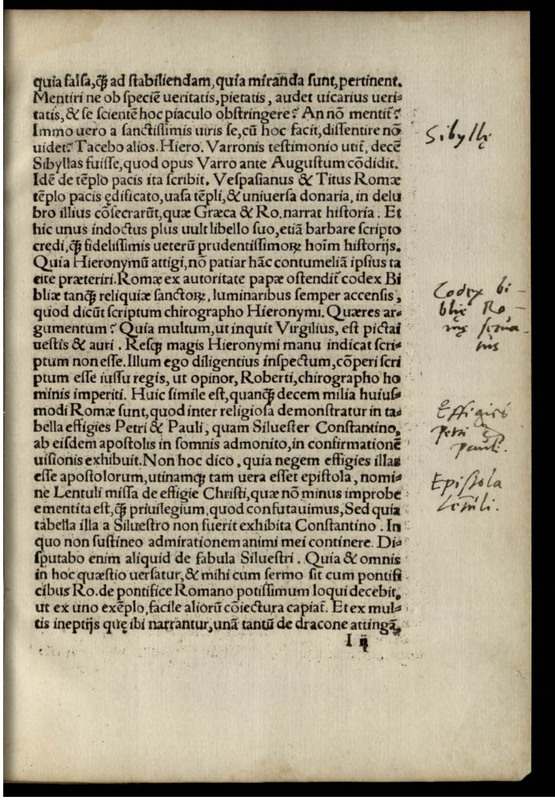 quia falsa, q̃ ad stabiliendam, quia miranda sunt, pertinent.
Mentiri ne ob speciẽ ueritatis, pietatis, audet uicarius ueri⸗
tatis, & se scientẽ hoc piaculo obstringere? An nõ mentit᷑?
Immo uero a sanctissimis uiris se, cũ hoc facit, dissentire nõ
uidet? Tacebo alios. Hiero. Varronis testimonio utit᷑, decẽ
Sibyllas fuisse, quod opus Varro ante Augustum cõdidit.
Idẽ de tẽplo pacis ita scribit. Vespasianus & Titus Romæ
tẽplo pacis ędificato, uasa tẽpli, & uniuersa donaria, in delu
bro illius cõsecrarũt, quæ Græca & Ro. narrat historia. Et
hic unus indoctus plus uult libello suo, etiã barbare scripto
credi, q̃ fidelissimis ueterũ prudentissimoꝝ hoĩm historijs.
Quia Hieronymũ attigi, nõ patiar hãc contumeliã ipsius ta
cite præteriri. Romæ ex autoritate papæ ostendit᷑ codex Bi
bliæ tanq̃ reliquiæ sanctoꝝ, luminaribus semper accensis,
quod dicũt scriptum chirographo Hieronymi. Quæres ar⸗
gumentum? Quia multum, ut inquit Virgilius, est pictai
uestis & auri. Resq; magis Hieronymi manu indicat scri⸗
ptum non esse. Illum ego diligentius inspectum, cõperi scri
ptum esse iussu regis, ut opinor, Roberti, chirographo ho
minis imperiti. Huic simile est, quanq̃ decem milia huius⸗
modi Romæ sunt, quod inter religiosa demonstratur in ta⸗
bella effigies Petri & Pauli, quam Siluester Constantino,
ab eisdem apostolis in somnis admonito, in confirmationẽ
uisionis exhibuit. Non hoc dico, quia negem effigies illas
esse apostolorum, utinamq; tam uera esset epistola, nomi⸗
ne Lentuli missa de effigie Christi, quæ nõ minus improbe
ementita est, q̃ priuilegium, quod confutauimus, Sed quia
tabella illa a Siluestro non fuerit exhibita Constantino. In
quo non sustineo admirationem animi mei continere. Di⸗
sputabo enim aliquid de fabula Siluestri. Quia & omnis
in hoc quæstio uersatur, & mihi cum sermo sit cum pontifi
cibus Ro. de pontifice Romano potissimum loqui decebit,
ut ex uno exẽplo, facile aliorũ cõiectura capiat᷑. Et ex mul⸗
tis ineptijs quę ibi narrantur, unã tantũ de dracone attingã,
I ij
Sibyllę
Codex bi⸗
blię Ro⸗
mę
Effigies
Petri &
pauli.
Epistola
Lẽtuli.